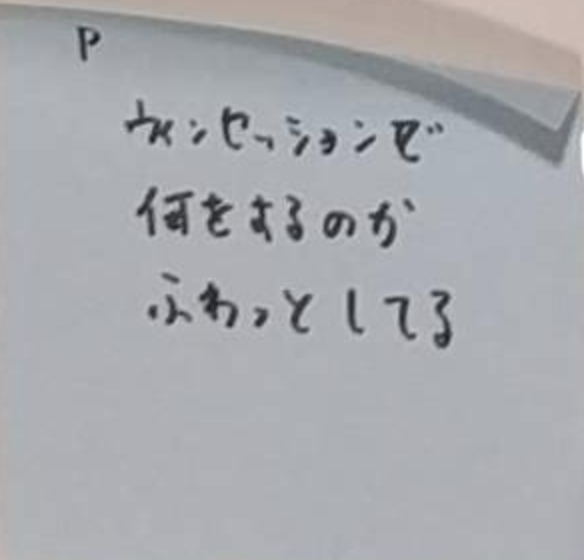 P
ウィンセッションで
何をするのか
ふわっとしてる